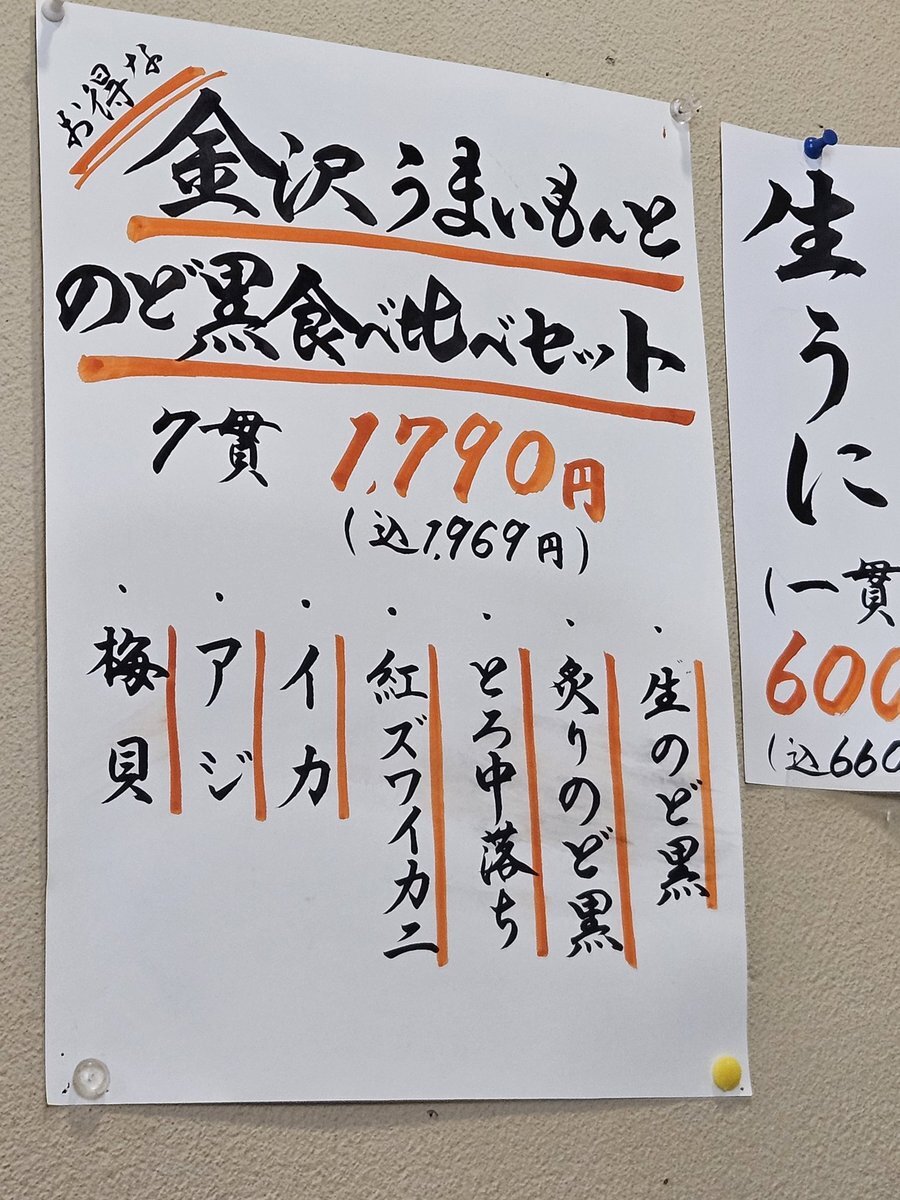 お得な
金沢うまいもんと
のど黒食べ比べセット
7貫 1,790円
(込1,969円)
・生のど黒
・炙りのど黒
・とろ中落ち
・紅ズワイカニ
・イカ
・アジ
・梅貝
生うに
(一貫
600
(込660